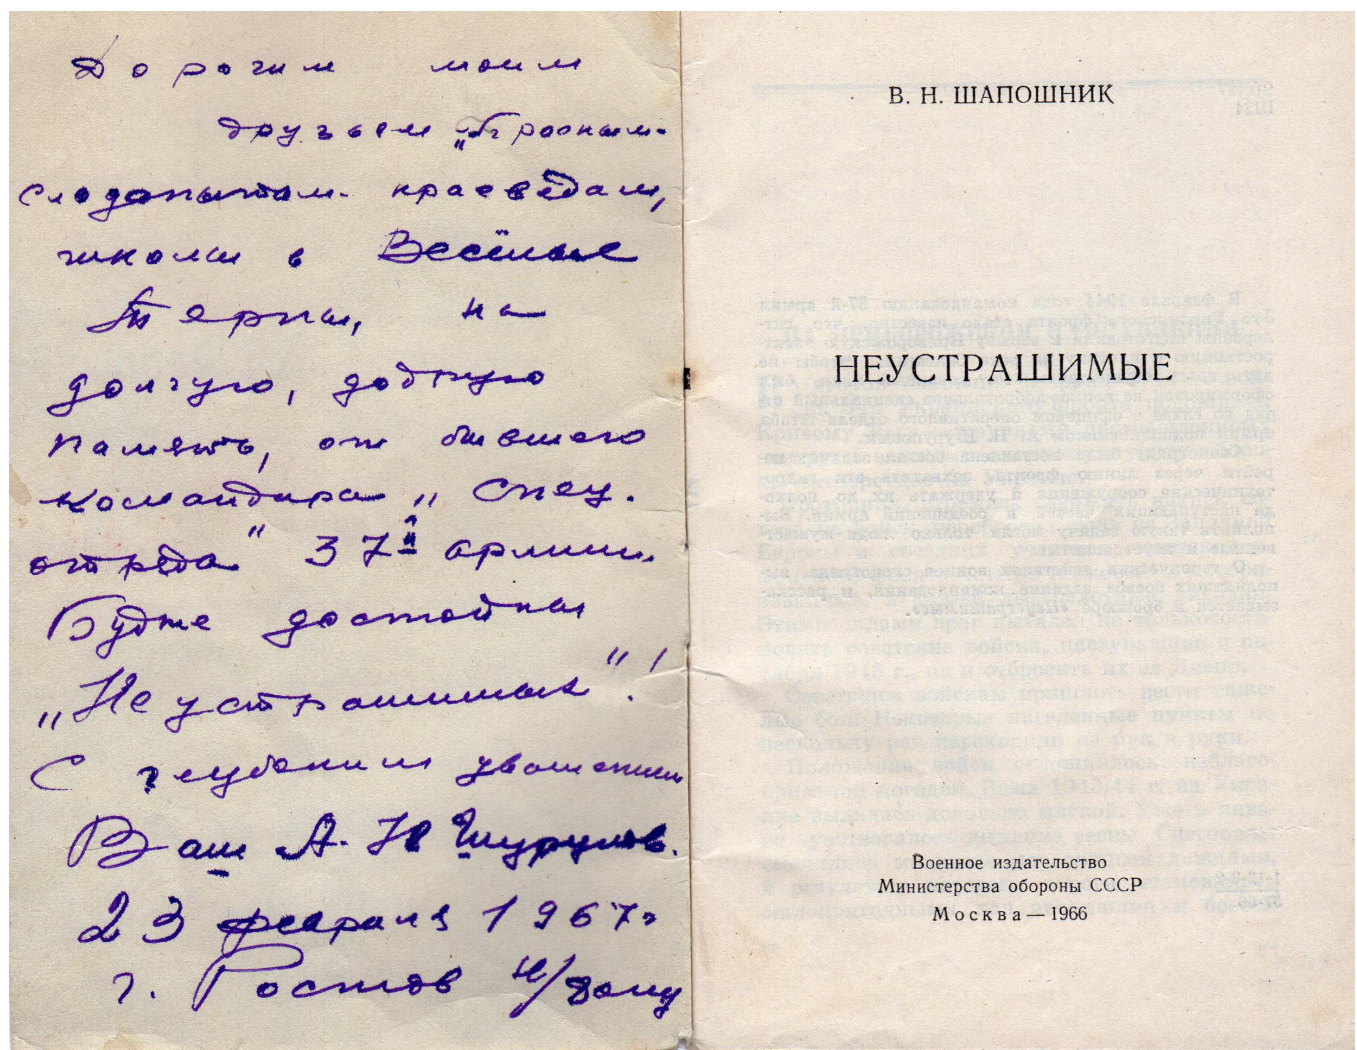 Дорогим моим
друзьям „Красным-
следопытам- краеведам,
школы в Весёлые
Терны, на
долгую, добрую
память, от бывшего
командира „спец.
отряда" 37й армии.
Будьте достойны
„Неустрашимых"!
С глубоким уважением
Ваш А. Н Шурупов.
23 февраля 1967г
г. Ростов н/Дону
В. Н. ШАПОШНИК
НЕУСТРАШИМЫЕ
Военное издательство
Министерства обороны СССР
Москва — 1966